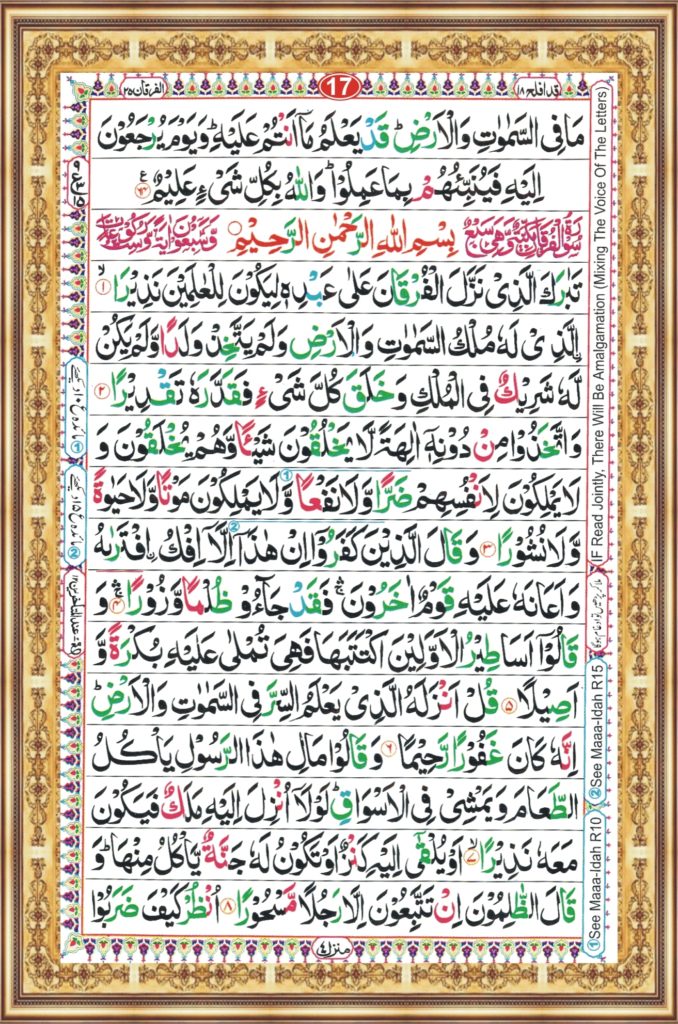 قد افلح ١٨ 17 الفرقان ٢٥
مَا فِى السَّمٰوٰتِ وَالْاَرْضِ ؕ قَدْ يَعْلَمُ مَاۤ اَنْتُمْ عَلَيْهِ ؕ وَيَوْمَ يُرْجَعُوْنَ
اِلَيْهِ فَيُنَبِّئُهُمْ بِمَا عَمِلُوْا ؕ وَاللّٰهُ بِكُلِّ شَىْءٍ عَلِيْمٌ
بِسْمِ اللّٰهِ الرَّحْمٰنِ الرَّحِيْمِ
تَبٰرَكَ الَّذِىْ نَزَّلَ الْفُرْقَانَ عَلٰى عَبْدِهٖ لِيَكُوْنَ لِلْعٰلَمِيْنَ نَذِيْرًا ۙ ١
اۨلَّذِىْ لَهٗ مُلْكُ السَّمٰوٰتِ وَالْاَرْضِ وَلَمْ يَتَّخِذْ وَلَدًا وَّلَمْ يَكُنْ
لَّهٗ شَرِيْكٌ فِى الْمُلْكِ وَخَلَقَ كُلَّ شَىْءٍ فَقَدَّرَهٗ تَقْدِيْرًا ٢
وَاتَّخَذُوْا مِنْ دُوْنِهٖۤ اٰلِهَةً لَّا يَخْلُقُوْنَ شَيْئًا وَّهُمْ يُخْلَقُوْنَ وَ
لَا يَمْلِكُوْنَ لِاَنْفُسِهِمْ ضَرًّا وَّلَا نَفْعًا وَّلَا يَمْلِكُوْنَ مَوْتًا وَّلَا حَيٰوةً
وَّلَا نُشُوْرًا ٣ وَقَالَ الَّذِيْنَ كَفَرُوْۤا اِنْ هٰذَاۤ اِلَّاۤ اِفْكُ ۨافْتَرٰىهُ
وَاَعَانَهٗ عَلَيْهِ قَوْمٌ اٰخَرُوْنَ ۛۚ فَقَدْ جَآءُوْ ظُلْمًا وَّزُوْرًا ۛۚ ٤ وَ
قَالُوْۤا اَسَاطِيْرُ الْاَوَّلِيْنَ اكْتَتَبَهَا فَهِىَ تُمْلٰى عَلَيْهِ بُكْرَةً وَّ
اَصِيْلًا ٥ قُلْ اَنْزَلَهُ الَّذِىْ يَعْلَمُ السِّرَّ فِى السَّمٰوٰتِ وَالْاَرْضِ ؕ
اِنَّهٗ كَانَ غَفُوْرًا رَّحِيْمًا ٦ وَقَالُوْا مَالِ هٰذَا الرَّسُوْلِ يَاْكُلُ
الطَّعَامَ وَيَمْشِىْ فِى الْاَسْوَاقِ ؕ لَوْلَاۤ اُنْزِلَ اِلَيْهِ مَلَكٌ فَيَكُوْنَ
مَعَهٗ نَذِيْرًا ۙ ٧ اَوْ يُلْقٰٓى اِلَيْهِ كَنْزٌ اَوْ تَكُوْنُ لَهٗ جَنَّةٌ يَّاْكُلُ مِنْهَا ؕ وَ
قَالَ الظّٰلِمُوْنَ اِنْ تَتَّبِعُوْنَ اِلَّا رَجُلًا مَّسْحُوْرًا ٨ اُنْظُرْ كَيْفَ ضَرَبُوْا
منزل ٤
① See Maaa-Idah R10 ② See Maaa-Idah R15
IF Read Jointly, There Will Be Amalgamation (Mixing The Voice Of The Letters)